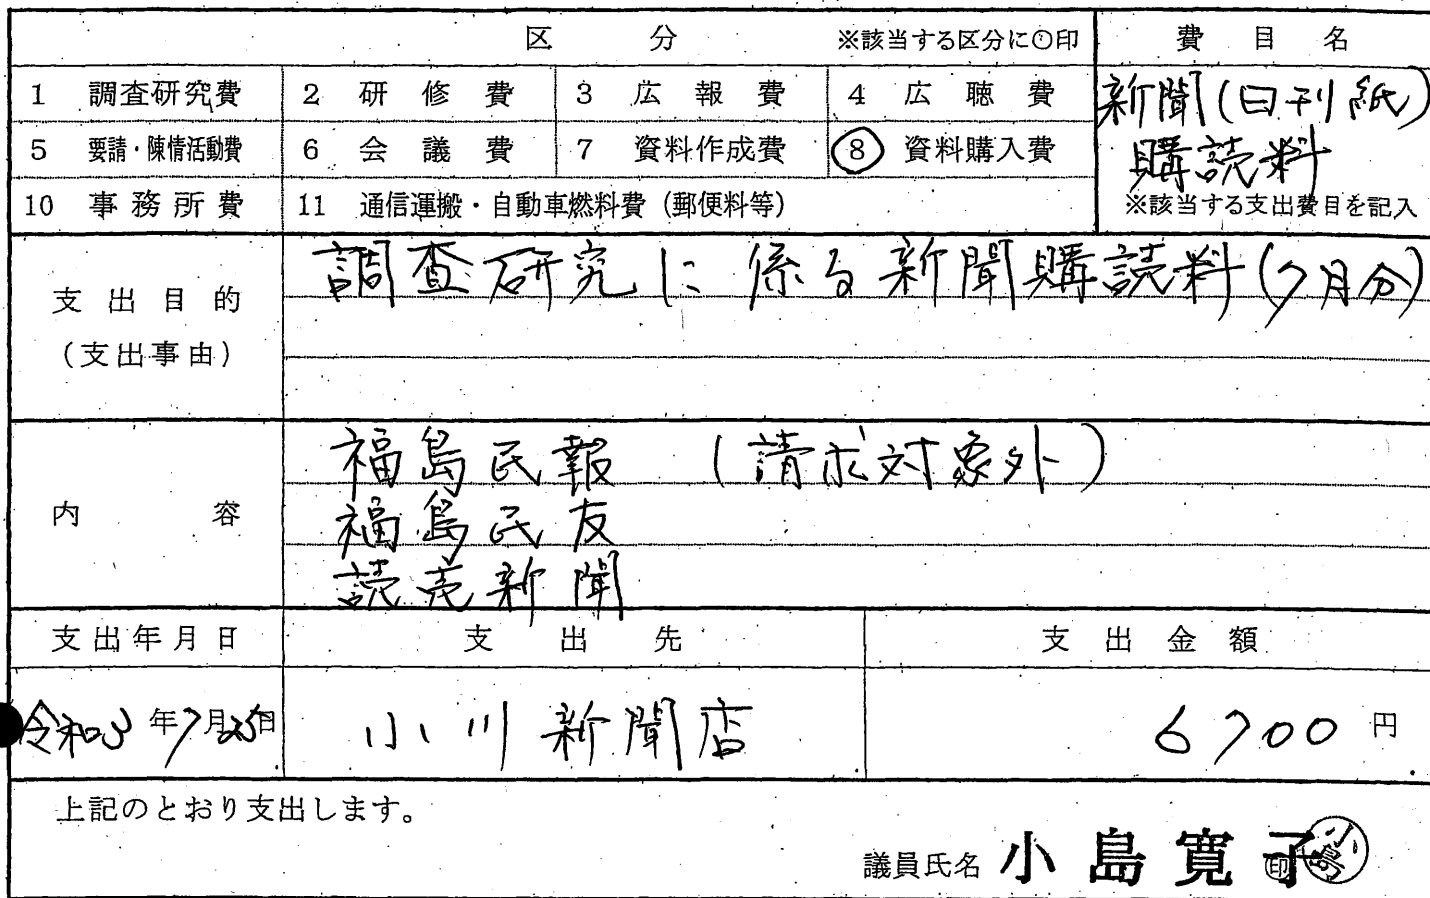 区 分 ※該当する区分に○印 費 目 名
1 調査研究費 2 研 修 費 3 広 報 費 4 広 聴 費 新聞(日刊紙)
5 要請・陳情活動費 6 会 議 費 7 資料作成費 8 資料購入費 購読料
10 事 務 所 費 11 通信運搬・自動車燃料費(郵便料等) ※該当する支出費目を記入
支 出 目 的 調査研究に係る新聞購読料(7月分)
(支出事由)
福島民報 (請求対象外)
内 容 福島民友
読売新聞
支出年月日 支 出 先 支 出 金 額
令和3年7月25日 小川新聞店 6700円
上記のとおり支出します。
議員氏名 小島寛子 ㊞ 小島